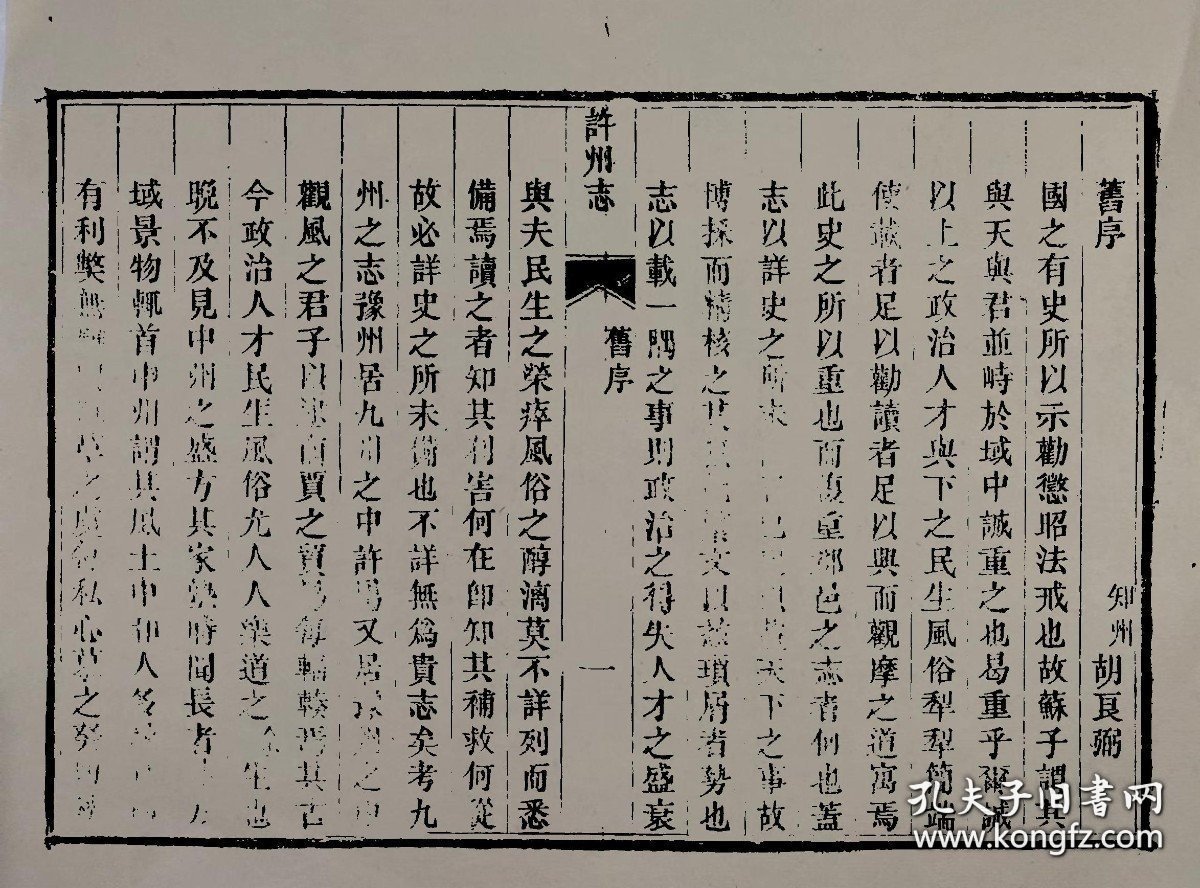 舊序
知州 胡良弼
國之有史所以示勸懲昭法戒也故蘇子謂其
與天與君並峙於域中誠重之也曷重乎爾誠
以上之政治人才與下之民生風俗犁犁簡端
使載者足以勸讀者足以興而觀摩之道寓焉
此史之所以重也而復重郡邑之志者何也蓋
志以詳史之所未下之事故
博採而精核之文以瑣屑者勢也
志以載一隅之事則政治之得失人才之盛衰
許州志
舊序
一
與夫民生之榮瘁風俗之醇漓莫不詳列而悉
備焉讀之者知其利害何在卽知其補救何從
故必詳史之所未備也不詳無爲貴志矣考九
州之志豫州居九州之中許爲又居之中
觀風之君子以商賈之貿每輻輳焉其古
今政治人才民生風俗尤人人樂道之生也
晩不及見中州之盛方其家塾時聞長者
域景物輒首中州謂其風土中和人
有利弊無之私心慕之
孔夫子旧书网
www.kongfz.com